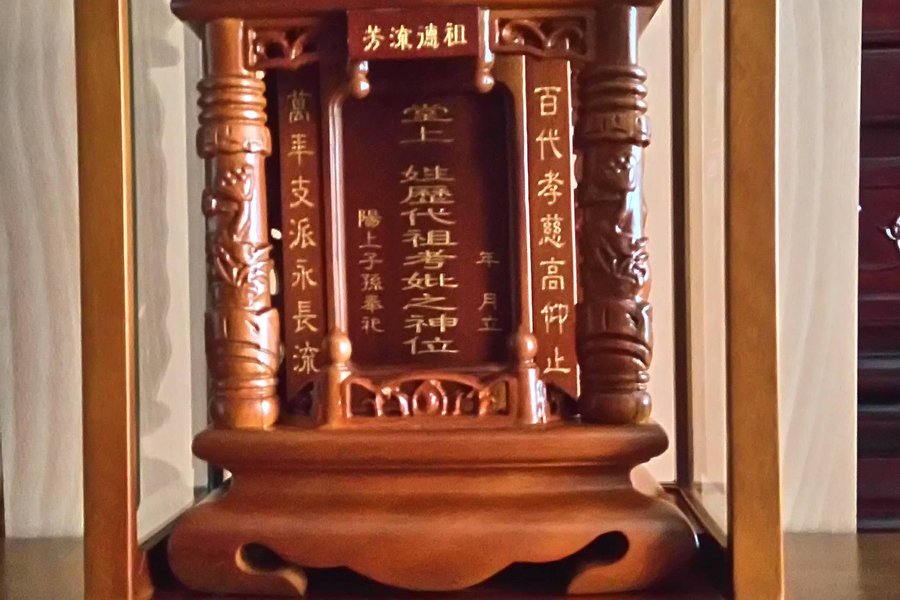 祖德流芳
百代孝慈高仰止
年 月立
堂上 姓歷代祖考妣之神位
陽上子孫奉祀
萬年支派永長流